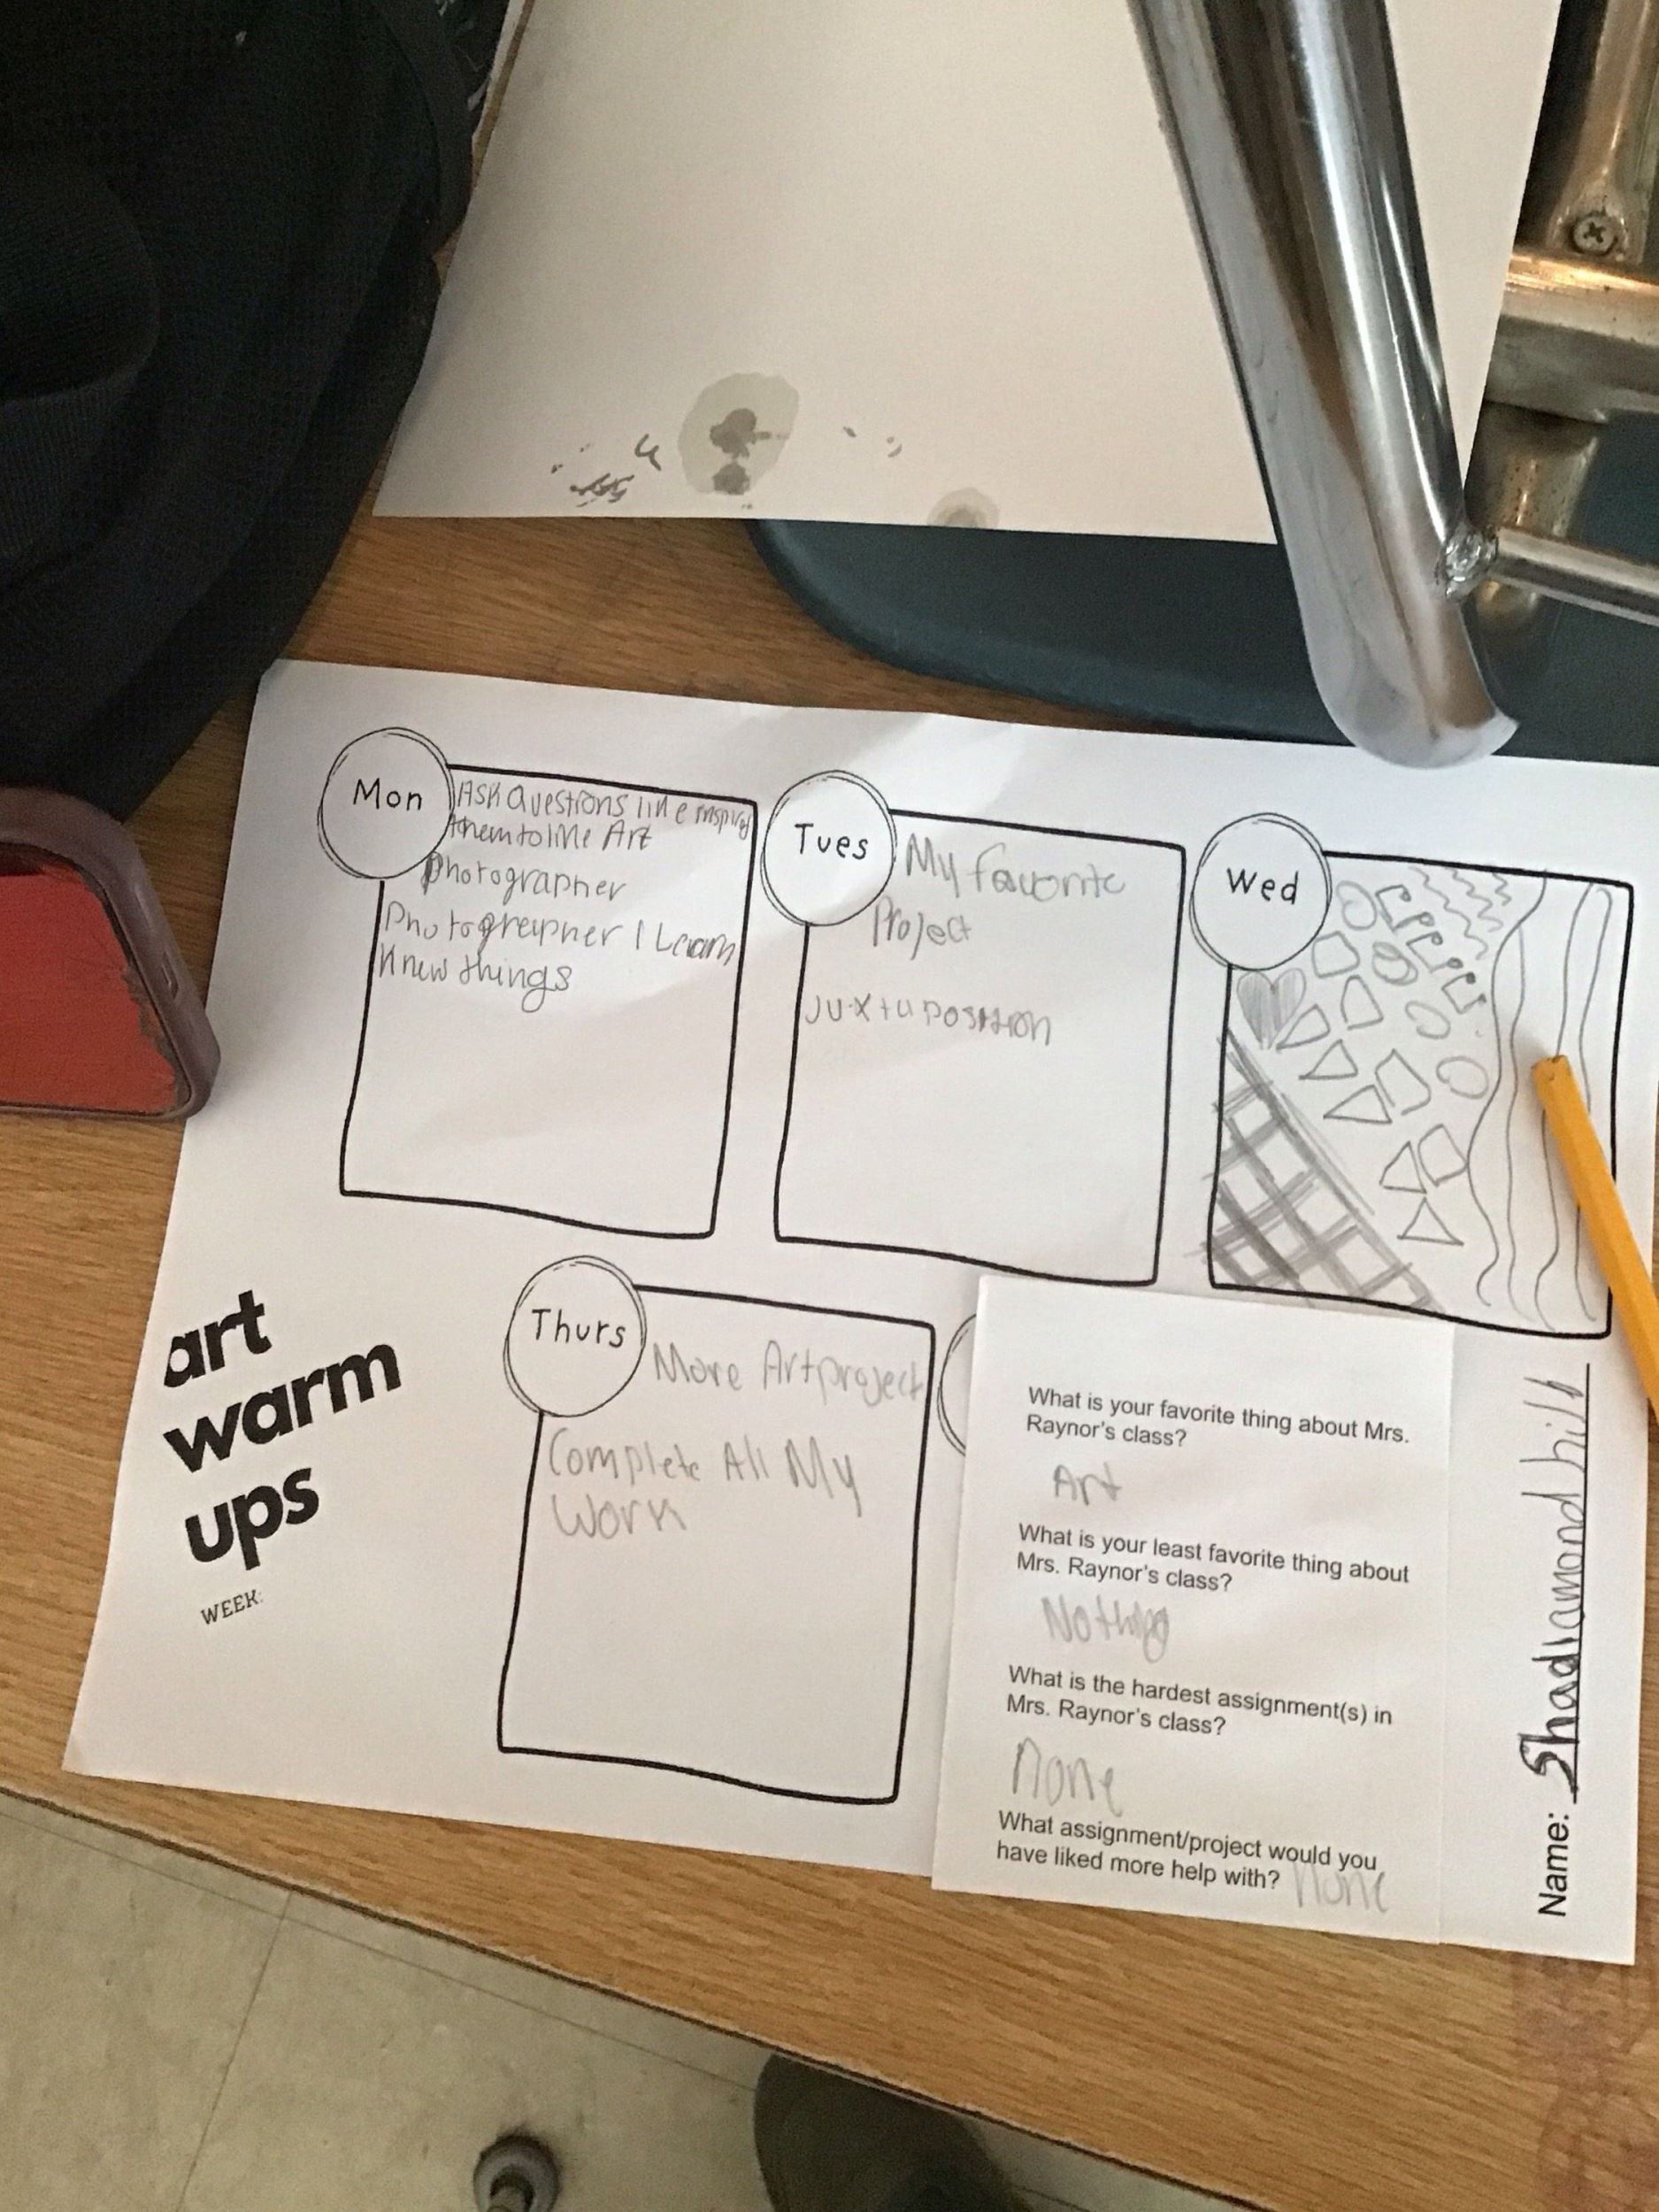 Mon
Ask Questions like inspired
them to like Art
Photographer
Photographer I Learn
Knew things
Tues
My favorite
Project
Juxtuposition
Wed
art
warm
ups
WEEK:
Thurs
More Artproject
Complete All My
Work
What is your favorite thing about Mrs.
Raynor's class?
Art
What is your least favorite thing about
Mrs. Raynor's class?
Nothing
What is the hardest assignment(s) in
Mrs. Raynor's class?
None
What assignment/project would you
have liked more help with? None
Name: Shadiamond hill